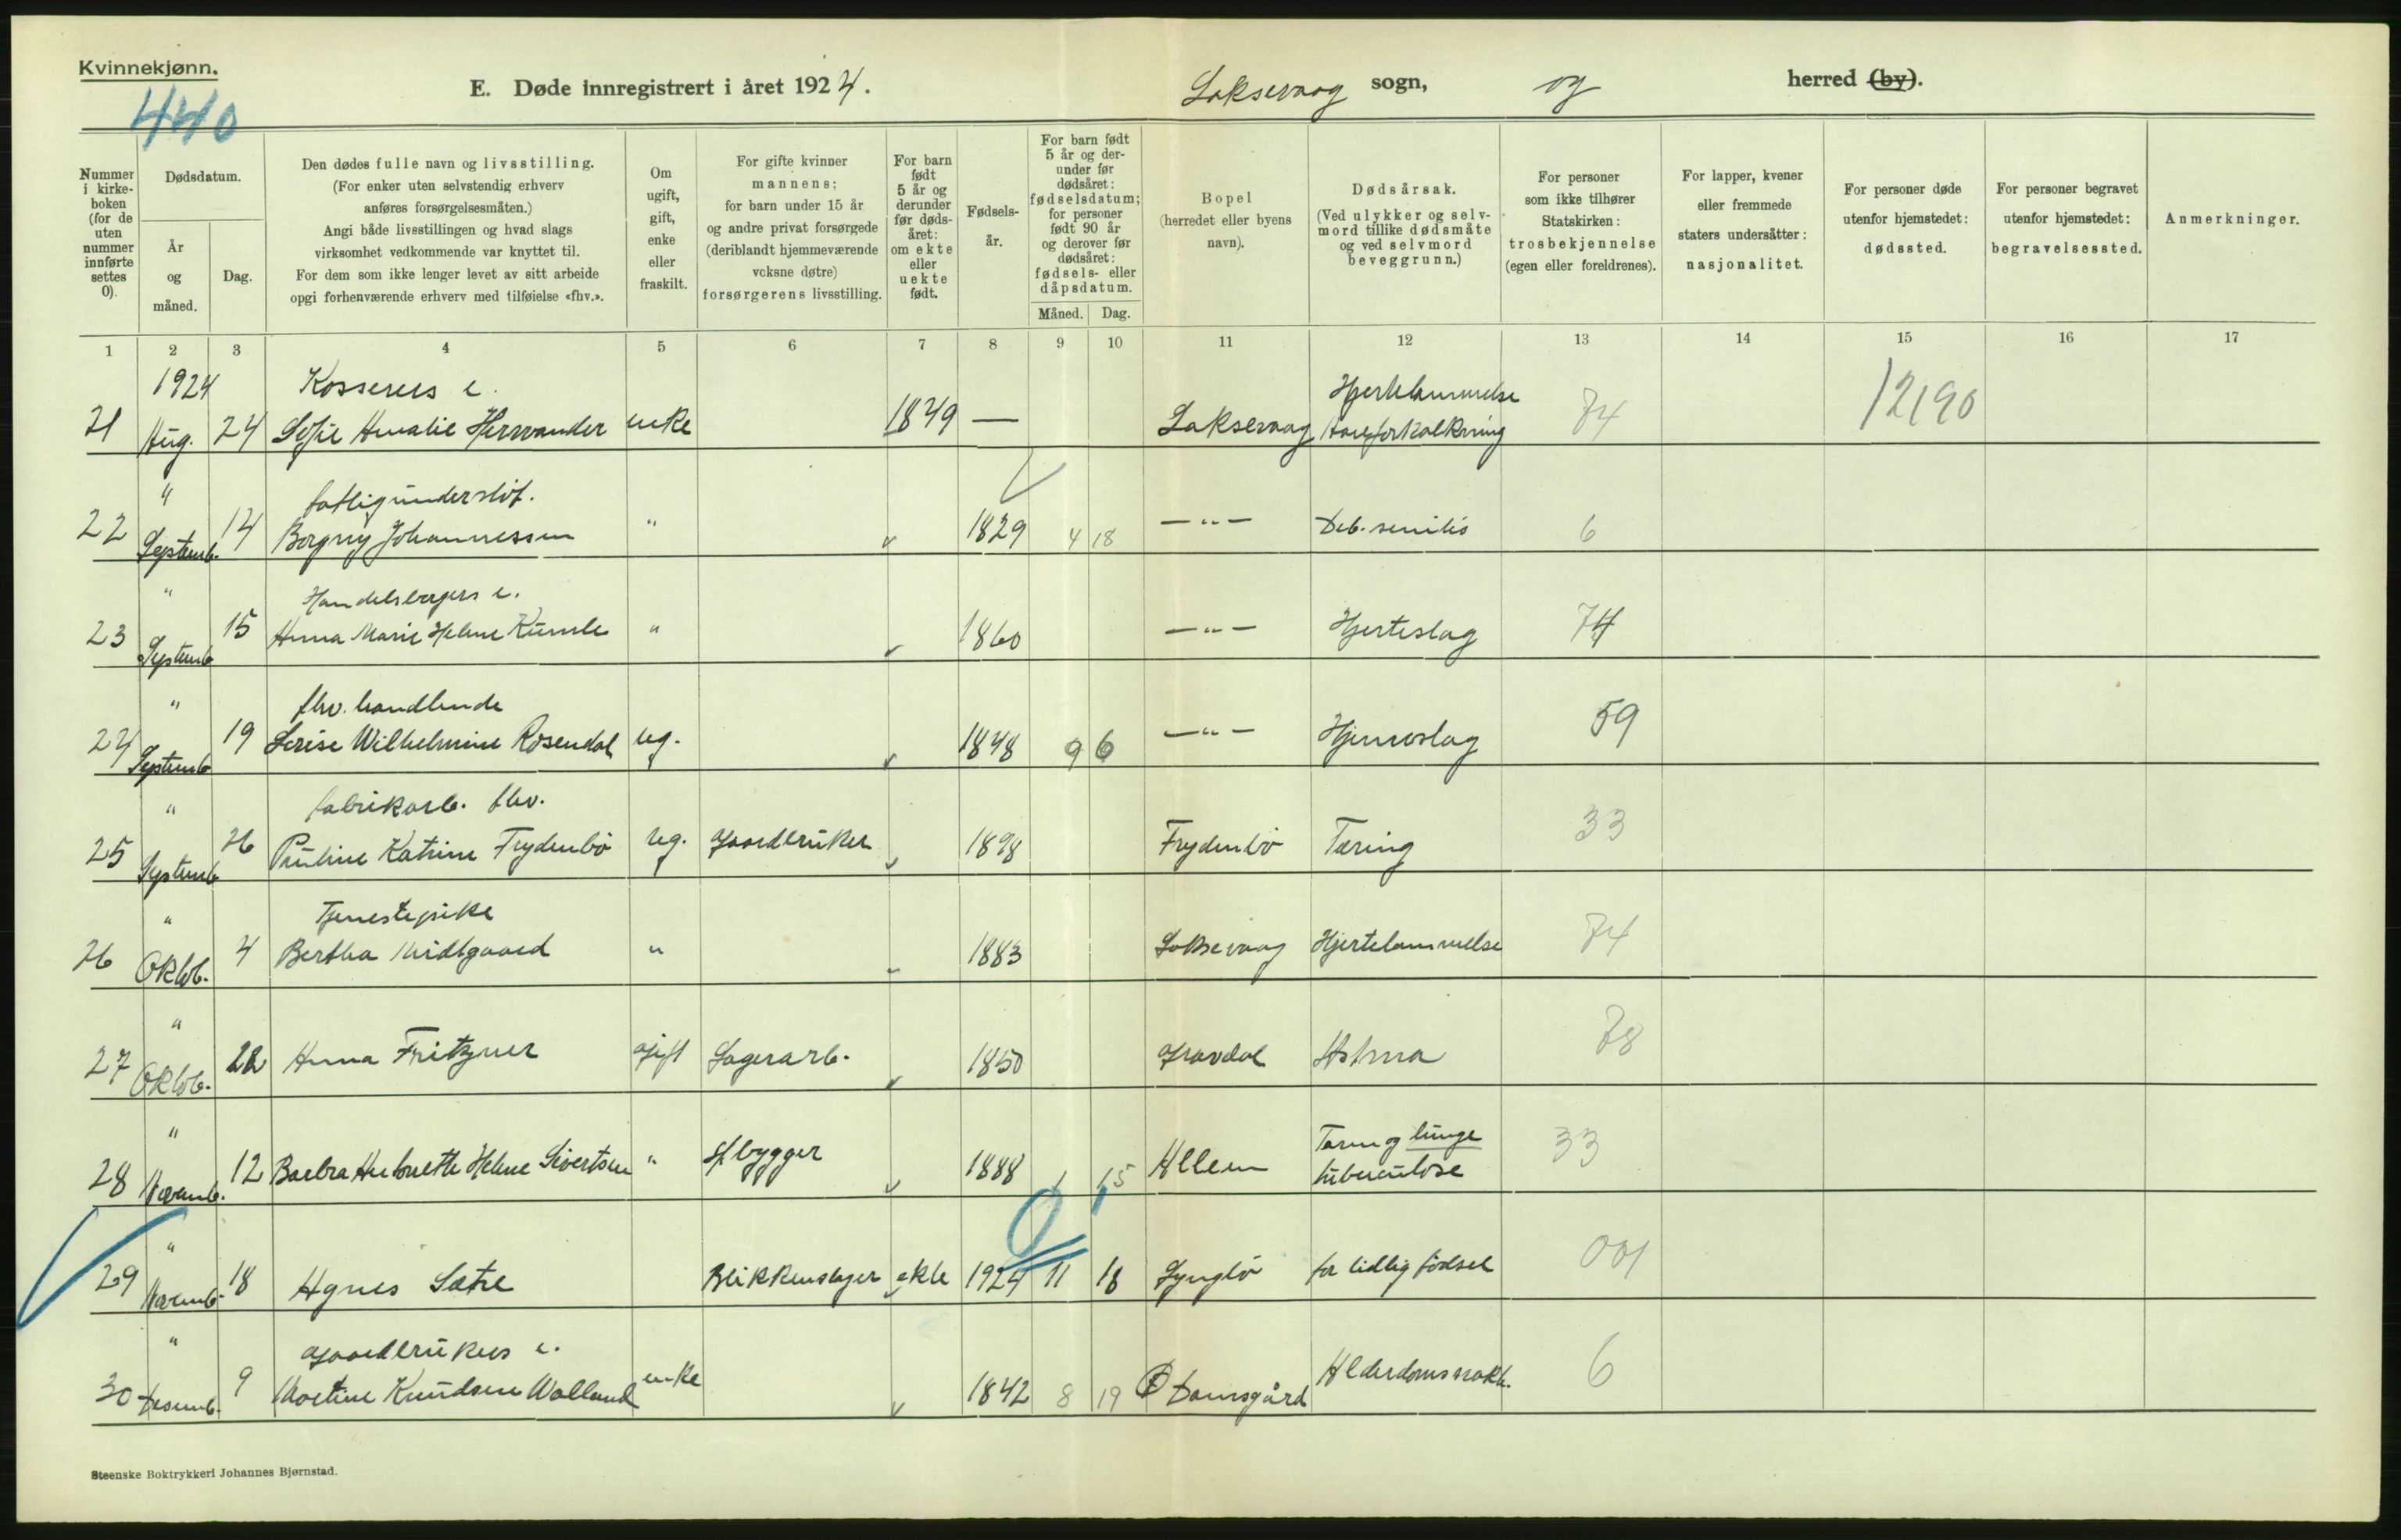 Kvinnekjønn.
440
E. Døde innregistrert i året 1924.
Laksevaag sogn, og herred (by).
Nummer i kirkeboken (for de uten nummer innførte settes 0).
Dødsdatum.
År og måned.
Dag.
Den dødes fulle navn og livsstilling.
(For enker uten selvstendig erhverv
anføres forsørgelsesmåten.)
Angi både livsstillingen og hvad slags
virksomhet vedkommende var knyttet til.
For dem som ikke lenger levet av sitt arbeide
opgi forhenværende erhverv med tilføielse «fhv.».
Om ugift, gift, enke eller fraskilt.
For gifte kvinner
mannens;
for barn under 15 år
og andre privat forsørgede
(deriblandt hjemmeværende
voksne døtre)
forsørgerens livsstilling.
For barn født 5 år og derunder før dødsåret: om ekte eller uekte født.
Fødselsår.
For barn født 5 år og derunder før dødsåret: fødselsdatum; for personer født 90 år og derover før dødsåret: fødsels- eller dåpsdatum.
Måned. Dag.
Bopel
(herredet eller byens
navn).
Dødsårsak.
(Ved ulykker og selvmord tillike dødsmåte
og ved selvmord
beveggrunn.)
For personer
som ikke tilhører
Statskirken:
trosbekjennelse
(egen eller foreldrenes).
For lapper, kvener
eller fremmede
staters undersåtter:
nasjonalitet.
For personer døde
utenfor hjemstedet:
dødssted.
For personer begravet
utenfor hjemstedet:
begravelsessted.
Anmerkninger.
1 2 3 4 5 6 7 8 9 10 11 12 13 14 15 16 17
1924 Kosserers e. Hjertelammelse
21 Aug. 24 Sofie Amalie Herwander enke 1849 — Laksevaag Aareforkalkning 74 12190
" fattigunderstøt.
22 Septemb. 14 Borgny Johannessen " 1829 4 18 —"— Deb. senilis 6
" Handelsborgers e.
23 Septemb 15 Anna Marie Helene Kumle " 1860 —"— Hjerteslag 74
" fhv. handlende
24 Septemb 19 Lovise Wilhelmine Rosendal ug. 1848 9 6 —"— Hjerneslag 59
" fabrikarb. fhv.
25 Septemb 26 Pauline Katrine Frydenbø ug. Gaardbruker 1898 Frydenbø Tæring 33
" Tjenestepike
26 Oktob. 4 Bertha Midtgaard " 1883 Laksevaag Hjertelammelse 74
"
27 Oktob. 22 Anna Fritzner gift Lagerarb. 1850 Gravdal Astma 78
" Tarm og lunge
28 Novemb. 12 Barbra Antonette Helene Sivertsen " Sf.bygger 1888 1 15 Alleen tuberculose 33
"
29 Novemb. 18 Agnes Sætre Blikkenslager ekte 1924 11 18 Lyngbø for tidlig fødsel 001
" Gaardbrukers e.
30 Desemb. 9 Martine Knudsen Wolland enke 1842 8 19 Ø Damsgård Alderdomssvakh. 6
Steenske Boktrykkeri Johannes Bjørnstad.